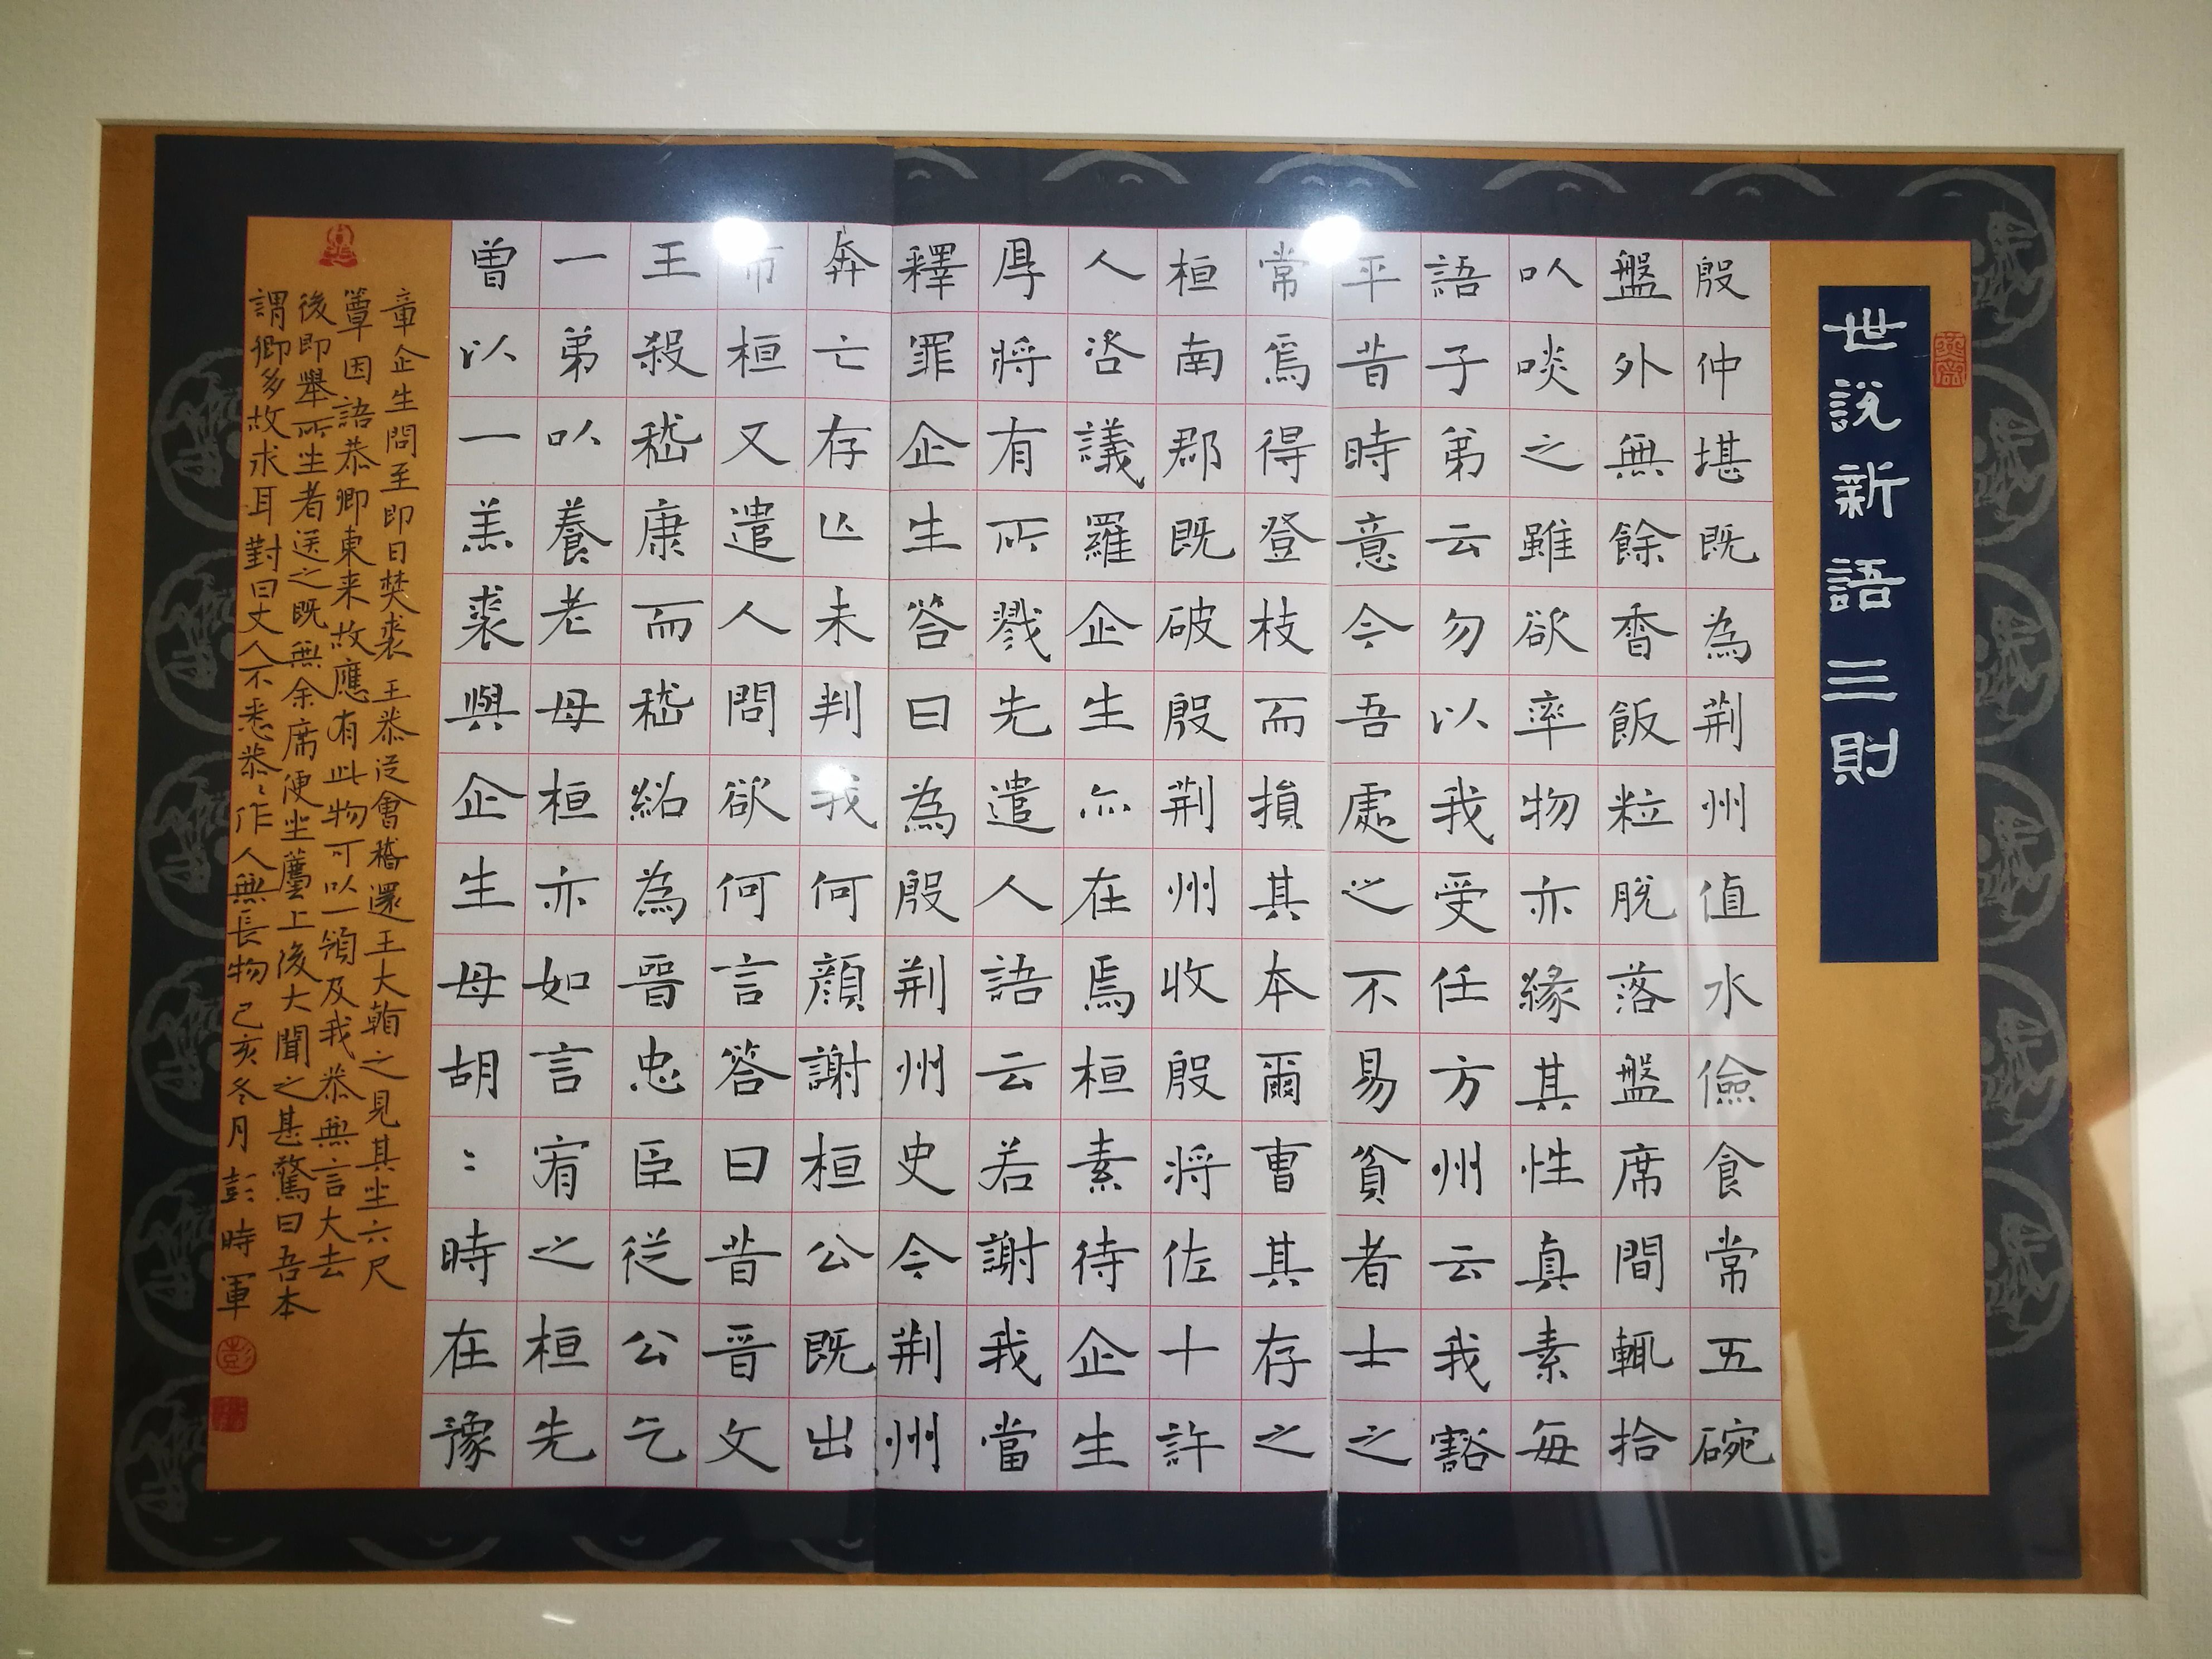 世説新語三則
殷仲堪既為荆州值水儉食常五碗
盤外無餘香飯粒脫落盤席間輒拾
以啖之雖欲率物亦緣其性真素每
語子弟云勿以我受任方州云我豁
平昔時意今吾處之不易貧者士之
常焉得登枝而損其本爾曹其存之
桓南郡既破殷荆州收殷將佐十許
人咨議羅企生亦在焉桓素待企生
厚將有所戮先遣人語云若謝我當
釋罪企生答曰為殷荆州史今荆州
奔亡存亡未判我何顏謝桓公既出
市桓又遣人問欲何言答曰昔晉文
王殺嵇康而嵇紹為晉忠臣從公乞
一弟以養老母桓亦如言宥之桓先
曾以一羔裘與企生母胡〻時在豫
章企生問至即日焚裘 王恭從會稽還王大翰之見其坐六尺
簟因語恭卿東来故應有此物可以一領及我恭無言大去
後即舉所坐者送之既無余席便坐薦上後大聞之甚驚曰吾本
謂卿多故求耳對曰丈人不悉恭〻作人無長物 己亥冬月 彭時軍
彭